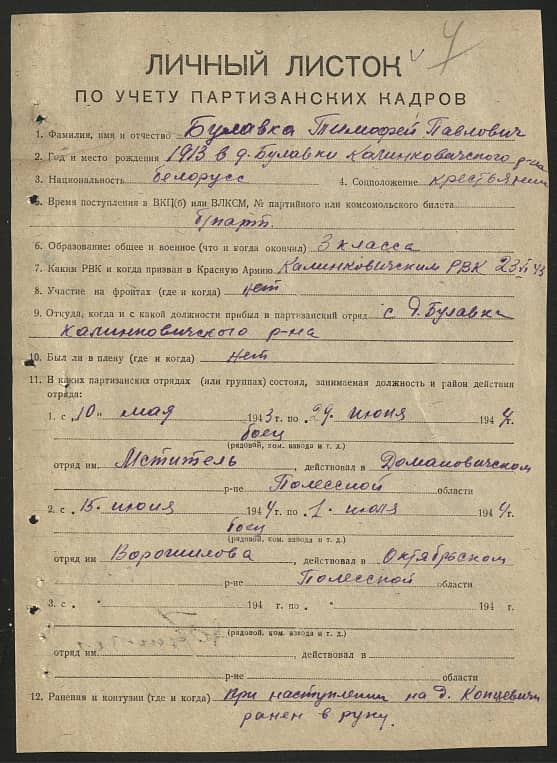 ЛИЧНЫЙ ЛИСТОК
ПО УЧЕТУ ПАРТИЗАНСКИХ КАДРОВ
1. Фамилия, имя и отчество Булавка Тимофей Павлович
2. Год и место рождения 1913 в д. Булавки Калинковичского р-на
3. Национальность белорусс 4. Соцположение крестьянин
5. Время поступления в ВКП(б) или ВЛКСМ, № партийного или комсомольского билета
б/парт.
6. Образование: общее и военное (что и когда окончил) 3 класса
7. Каким РВК и когда призван в Красную Армию Калинковичским РВК
8. Участие на фронтах (где и когда) нет
9. Откуда, когда и с какой должности прибыл в партизанский отряд с д. Булавка
Калинковичского р-на
10. Был ли в плену (где и когда) нет
11. В каких партизанских отрядах (или группах) состоял, занимаемая должность и район действия
отряда:
1. с „10" мая 1943 г. по „29 июня 1944 г.
боец
(рядовой, ком. взвода и т. д.)
отряд им. Мститель, действовал в Домановичском
р-не Полесской области
2. с „15. июня 1944 г. по „1. июля 1944 г.
боец
(рядовой, ком. взвода и т. д.)
отряд им Ворошилова, действовал в Октябрьском
р-не Полесской области
3. с „ 194 г. по „ 194 г.
(рядовой, ком. взвода и т. д.)
отряд им. , действовал в
р-не области
12. Ранения и контузии (где и когда) При наступлении на д. Копцевичи
ранен в руку.